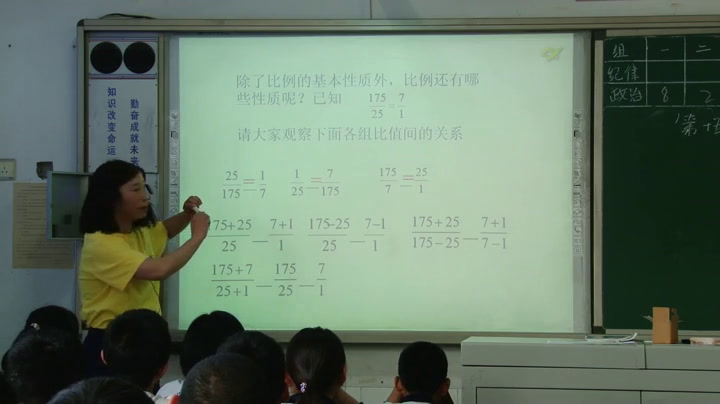 知识改变命运
勤奋成就未来
除了比例的基本性质外，比例还有哪
些性质呢？已知 175/25=7/1
请大家观察下面各组比值间的关系
25/175=1/7 1/25=7/175 175/7=25/1
175+25/25—7+1/1 175-25/25—7-1/1 175+25/175-25—7+1/7-1
175+7/25+1—175/25—7/1
组 一 二
纪律
政治 8 2
第十